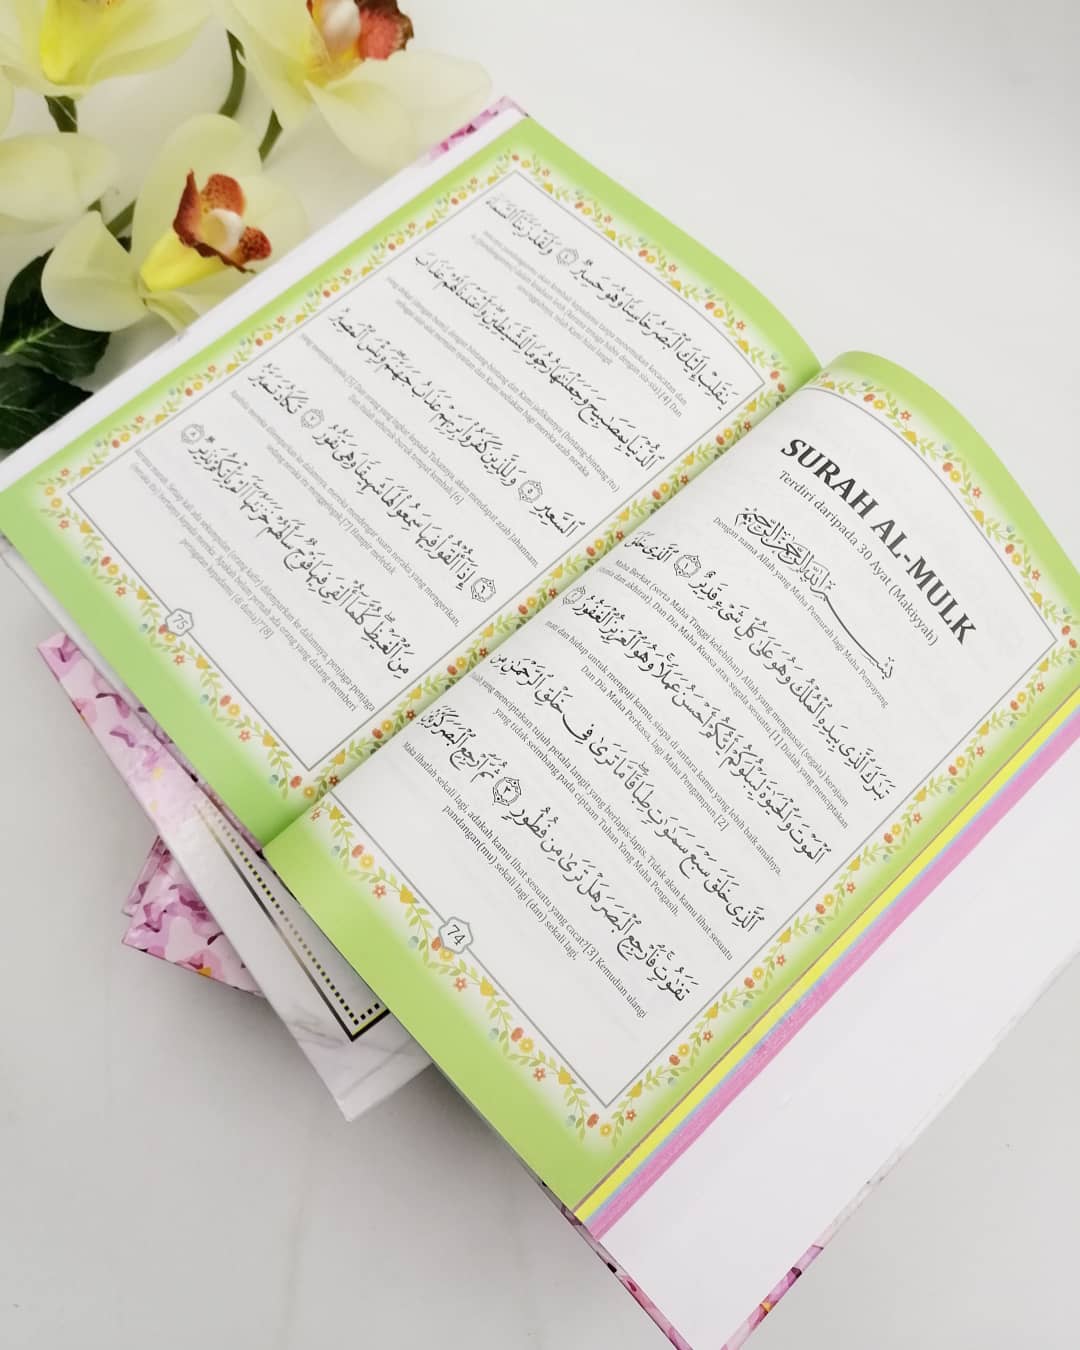 SURAH AL-MULK
Terdiri daripada 30 Ayat (Makiyyah)
بِسْمِ ٱللَّهِ ٱلرَّحْمَٰنِ ٱلرَّحِيمِ
Dengan nama Allah yang Maha Pemurah lagi Maha Penyayang
تَبَٰرَكَ ٱلَّذِى بِيَدِهِ ٱلْمُلْكُ وَهُوَ عَلَىٰ كُلِّ شَىْءٍ قَدِيرٌ ١ ٱلَّذِى خَلَقَ
Maha Berkat (serta Maha Tinggi kelebihan) Allah yang menguasai (segala) kerajaan
(dunia dan akhirat), Dan Dia Maha Kuasa atas segala sesuatu.[1] Dialah yang menciptakan
ٱلْمَوْتَ وَٱلْحَيَوٰةَ لِيَبْلُوَكُمْ أَيُّكُمْ أَحْسَنُ عَمَلًا وَهُوَ ٱلْعَزِيزُ ٱلْغَفُورُ ٢
mati dan hidup untuk menguji kamu, siapa di antara kamu yang lebih baik amalnya.
Dan Dia Maha Perkasa, lagi Maha Pengampun.[2]
ٱلَّذِى خَلَقَ سَبْعَ سَمَٰوَٰتٍ طِبَاقًا مَّا تَرَىٰ فِى خَلْقِ ٱلرَّحْمَٰنِ مِن
yang menciptakan tujuh petala langit yang berlapis-lapis. Tidak akan kamu lihat sesuatu
yang tidak seimbang pada ciptaan Tuhan Yang Maha Pengasih.
تَفَٰوُتٍ فَٱرْجِعِ ٱلْبَصَرَ هَلْ تَرَىٰ مِن فُطُورٍ ٣ ثُمَّ ٱرْجِعِ ٱلْبَصَرَ كَرَّتَيْنِ
Maka lihatlah sekali lagi, adakah kamu lihat sesuatu yang cacat?[3] Kemudian ulangi
pandangan(mu) sekali lagi (dan) sekali lagi,
74
يَنقَلِبْ إِلَيْكَ ٱلْبَصَرُ خَاسِئًا وَهُوَ حَسِيرٌ ٤ وَلَقَدْ زَيَّنَّا ٱلسَّمَآءَ
akan kembali kepadamu tanpa menemukan kecacatan dan
(pandanganmu) dalam keadaan letih (kerana tenaga habis dengan sia-sia).[4] Dan
sesungguhnya, telah Kami hiasi langit
ٱلدُّنْيَا بِمَصَٰبِيحَ وَجَعَلْنَٰهَا رُجُومًا لِّلشَّيَٰطِينِ وَأَعْتَدْنَا لَهُمْ عَذَابَ
yang dekat (dengan bumi) dengan bintang-bintang dan Kami jadikannya (bintang-bintang itu)
sebagai alat-alat merejam syaitan dan Kami sediakan bagi mereka azab neraka
ٱلسَّعِيرِ ٥ وَلِلَّذِينَ كَفَرُوا۟ بِرَبِّهِمْ عَذَابُ جَهَنَّمَ وَبِئْسَ ٱلْمَصِيرُ
yang menyala-nyala.[5] Dan orang yang ingkar kepada Tuhannya, akan mendapat azab Jahannam.
Dan itulah seburuk-buruk tempat kembali.[6]
٦ إِذَآ أُلْقُوا۟ فِيهَا سَمِعُوا۟ لَهَا شَهِيقًا وَهِىَ تَفُورُ ٧ تَكَادُ تَمَيَّزُ
Apabila mereka dilemparkan ke dalamnya, mereka mendengar suara neraka yang mengerikan,
sedang neraka itu menggelegak.[7] Hampir meledak
مِنَ ٱلْغَيْظِ كُلَّمَآ أُلْقِىَ فِيهَا فَوْجٌ سَأَلَهُمْ خَزَنَتُهَآ أَلَمْ يَأْتِكُمْ نَذِيرٌ ٨
kerana marah. Setiap kali ada sekumpulan (orang kafir) dilemparkan ke dalamnya, penjaga-penjaga
(neraka itu) bertanya kepada mereka: Apakah belum pernah ada orang yang datang memberi
peringatan kepadamu (di dunia)?[8]
75